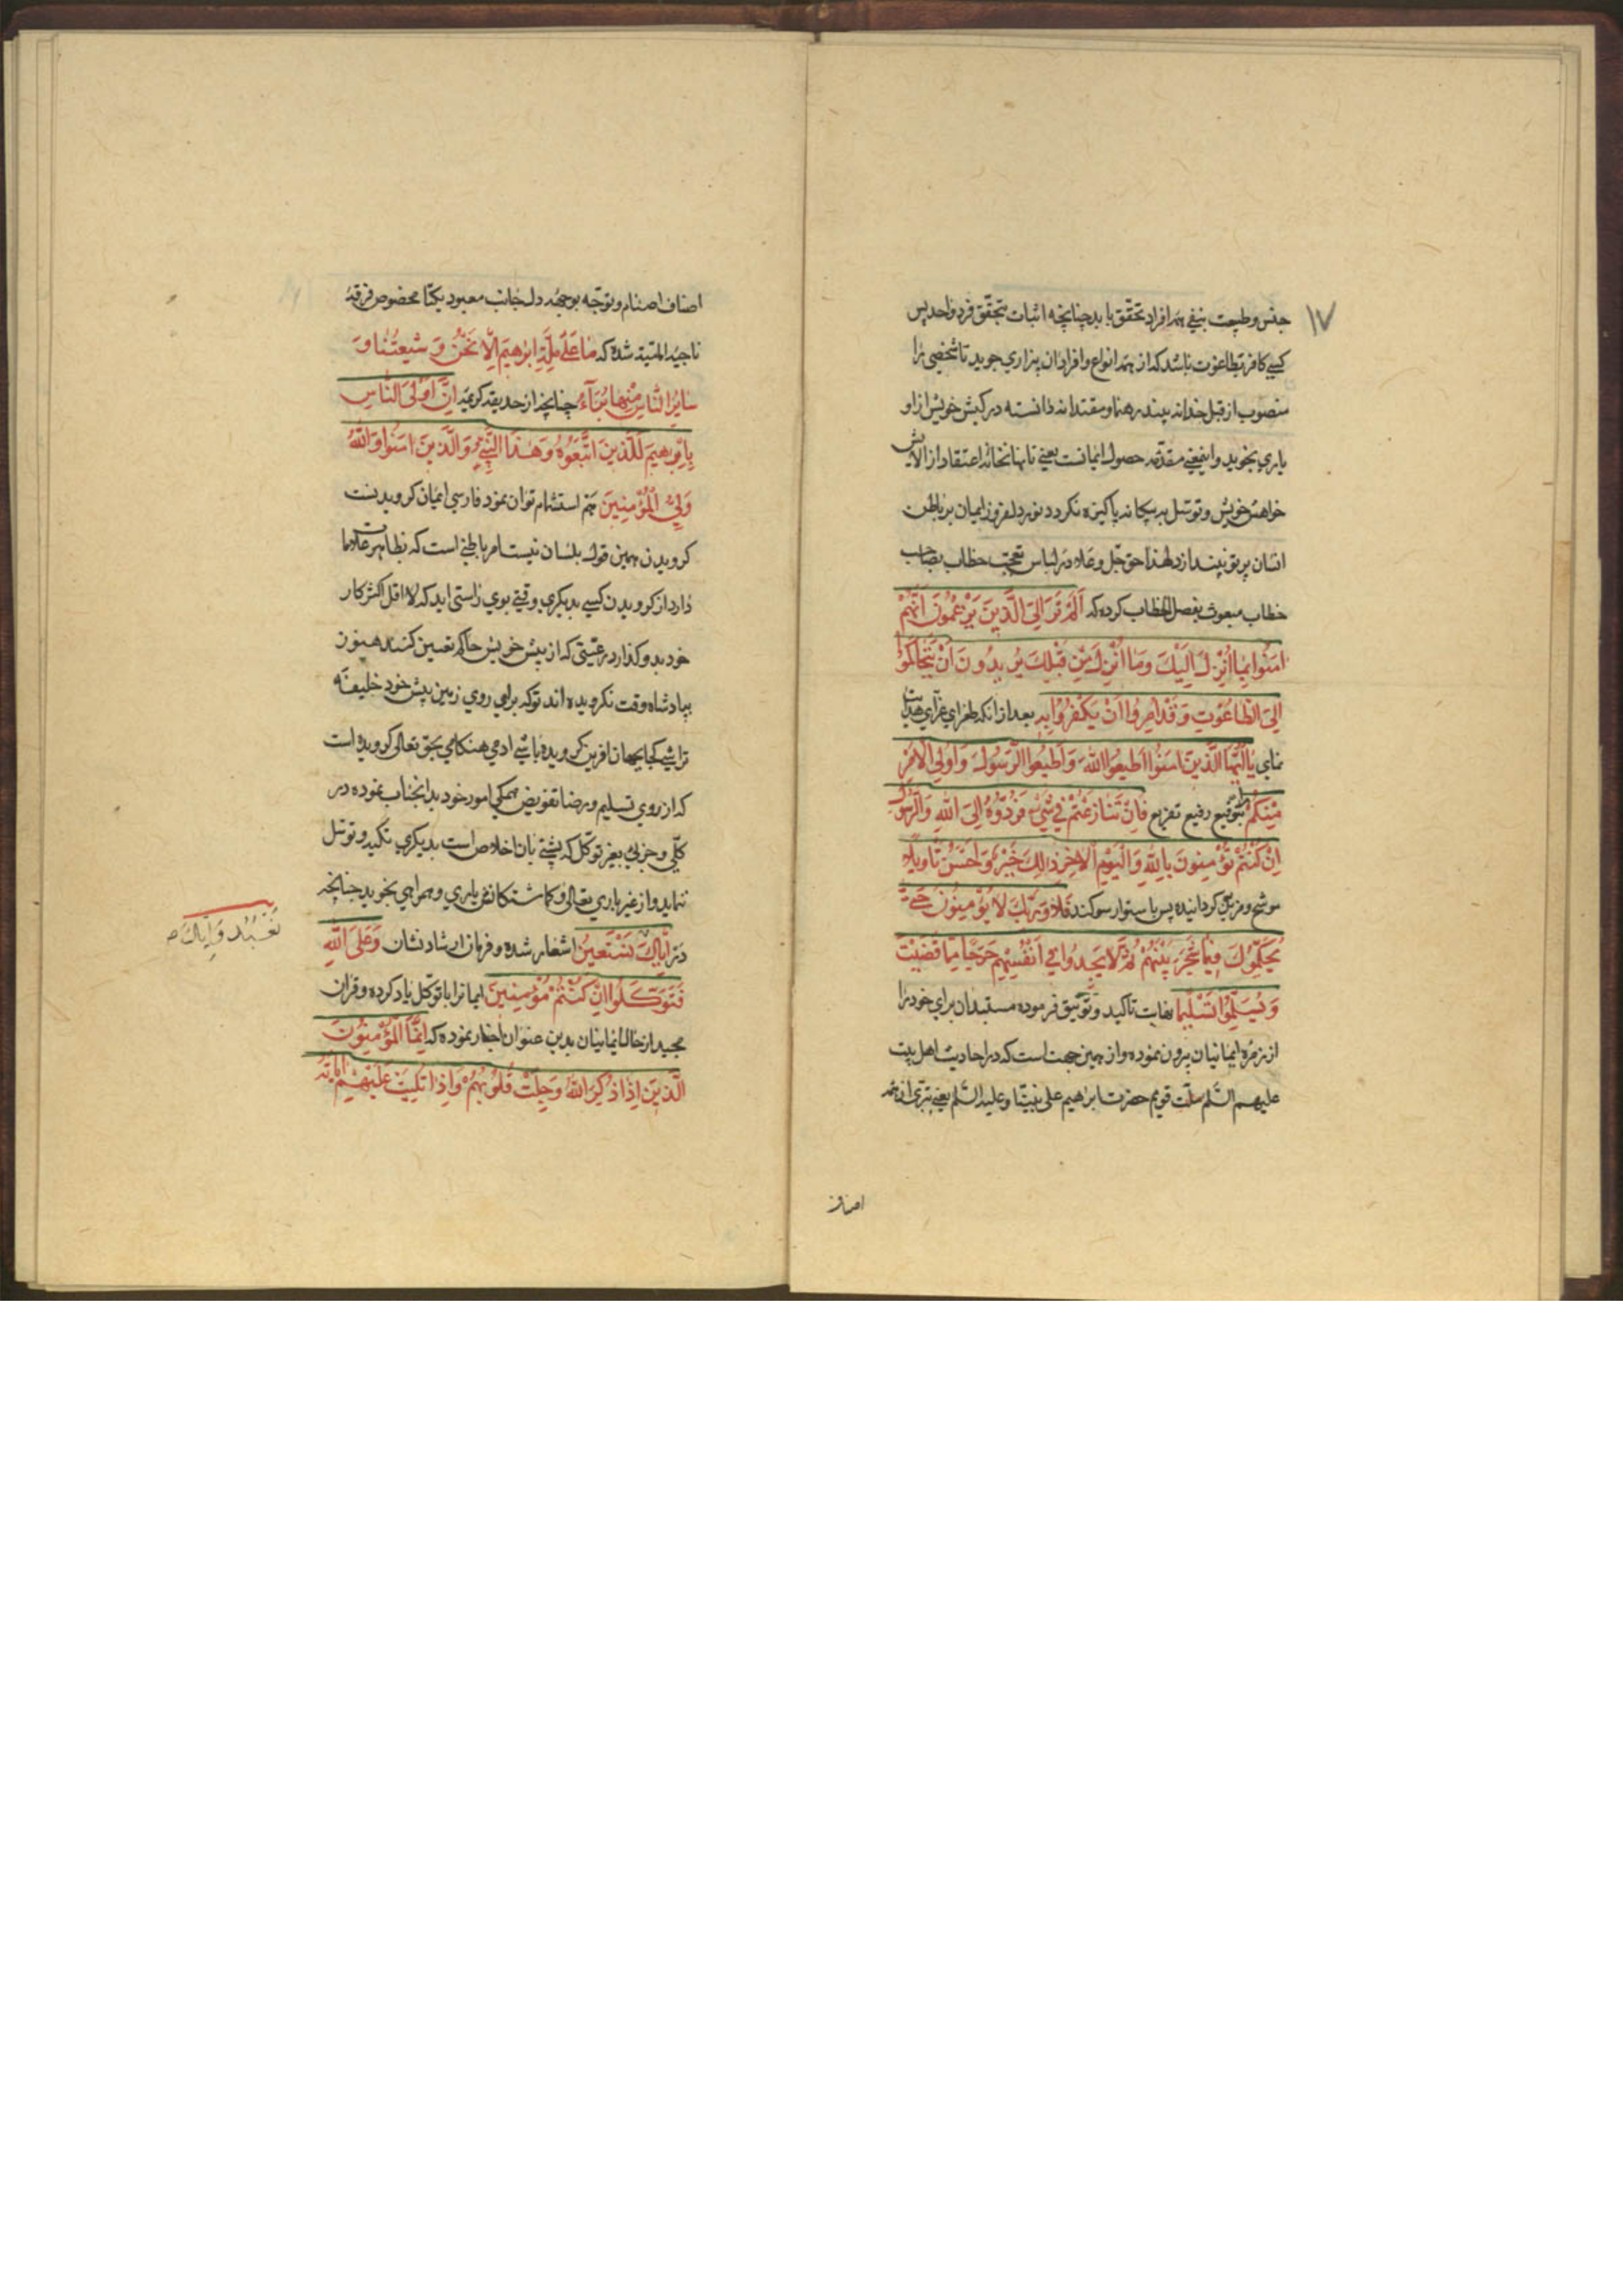 ۱۷
جنس و طبیعت بنفی همه افراد تحقق یابد چنانچه اثبات بتحقق فرد واحد پس
کسی کافر بطاغوت باشد که از همه انواع و افراد ان بیزاری جوید تا شخصی را
منصوب از قبل خدا نه بیند رهنما و مقتدا ندانسته در کیش خویش از او
یاری نجوید و اینمعنی مقدمه حصول ایمانست یعنی تا نهانخانه اعتقاد از الایش
خواهش خویش و توسل به بیکانه پاکیزه نکردد نور دلفروز ایمان بر باطن
انسان پرتو نیندازد لهذا حق جل و علا در لباس تعجب خطاب بصاحب
خطاب مبعوث بفصل الخطاب کرده که اَلَمْ تَرَ اِلَی الَّذینَ یَزْعُمُونَ اَنَّهُمْ
امَنُوا بِمَا اُنْزِلَ اِلَیْكَ وَمَا اُنْزِلَ مِنْ قَبْلِكَ یُرِیدُونَ اَنْ یَتَحَاکَمُوا
اِلَی الطَّاغُوتِ وَقَدْ اُمِرُوا اَنْ یَکْفُرُوا بِهِ بعد از انکه طغرای غرای هدایت
نمای یَا اَیُّهَا الَّذینَ امَنُوا اَطیعُوا اللهَ وَاَطیعُوا الرَّسُولَ وَاُولِی الْاَمْرِ
مِنْکُمْ بتوقیع رفیع تفریع فَاِنْ تَنَازَعْتُمْ فی شَیْءٍ فَرُدُّوهُ اِلَی اللهِ وَالرَّسُولِ
اِنْ کُنْتُمْ تُؤْمِنُونَ بِاللهِ وَالْیَوْمِ الْاخِرِ ذلِكَ خَیْرٌ وَاَحْسَنُ تَاْویلًا
موشح و مزین کردانیده پس با ستوار سوکند فَلَا وَرَبِّكَ لَا یُؤْمِنُونَ حَتّی
یُحَکِّمُوكَ فیمَا شَجَرَ بَیْنَهُمْ ثُمَّ لَا یَجِدُوا فی اَنْفُسِهِمْ حَرَجًا مِمَّا قَضَیْتَ
وَیُسَلِّمُوا تَسْلیمًا بغایت تاکید و توثیق فرموده مستبدان برای خود را
از زمره ایمانیان بیرون نموده و از همین جهت است که در احادیث اهل بیت
علیهم السلم ملت قویم حضرت ابرهیم علی نبینا و علیه السلم یعنی تبری از همه
اصناف اصنام و توجه بوجهه دل بجانب معبود یکتا مخصوص فرقه
ناجیه شده که مَا عَلی مِلَّةِ اِبْرهیمَ اِلَّا نَحْنُ وَشیعَتُنَا وَ
سَایِرُ النَّاسِ مِنْهَا بُرَآءُ چنانچه از حدیقه کریمه اِنَّ اَوْلَی النَّاسِ
بِاِبْرهیمَ لَلَّذینَ اتَّبَعُوهُ وَهذَا النَّبِیُّ وَالَّذینَ امَنُوا وَاللهُ
وَلِیُّ الْمُؤْمِنینَ هم استشمام توان نمود فارسی ایمان کرویدنست
کرویدن همین قول بلسان نیست امر باطنی است که بظاهر علامات
دارد از کرویدن کسی بدیکری وقتی بوی راستی اید که لا اقل اکثر کار
خود بدو کذارد رعیتی که از پیش خویش حاکم تعیین کنند هنوز
بپادشاه وقت نکرویده اند تو که برای روی زمین پیش خود خلیفه
تراشی کجا بجهان افرین کرویده باشی ادمی هنکامی بحق تعالی کرویده است
که از روی تسلیم و رضا تفویض همکی امور خود بدانجناب نموده در
کلی و جزئی بغیر توکل که پشتی بان اخلاص است بدیکری تکیه و توسل
ننماید و از غیر باری تعالی و کماشتکانش یاری و همراهی نجوید چنانچه
در اِیَّاكَ نَسْتَعینُ اشعار شده و فرمان ارشاد نشان وَعَلَی اللهِ
فَتَوَکَّلُوا اِنْ کُنْتُمْ مُؤْمِنینَ ایمانرا با توکل یاد کرده و قران
مجید از حال ایمانیان بدین عنوان اخبار نموده که اِنَّمَا الْمُؤْمِنُونَ
الَّذینَ اِذَا ذُکِرَ اللهُ وَجِلَتْ قُلُوبُهُمْ وَاِذَا تُلِیَتْ عَلَیْهِمْ ایَاتُهُ
نَعْبُدُ وَاِیَّاكَ صح